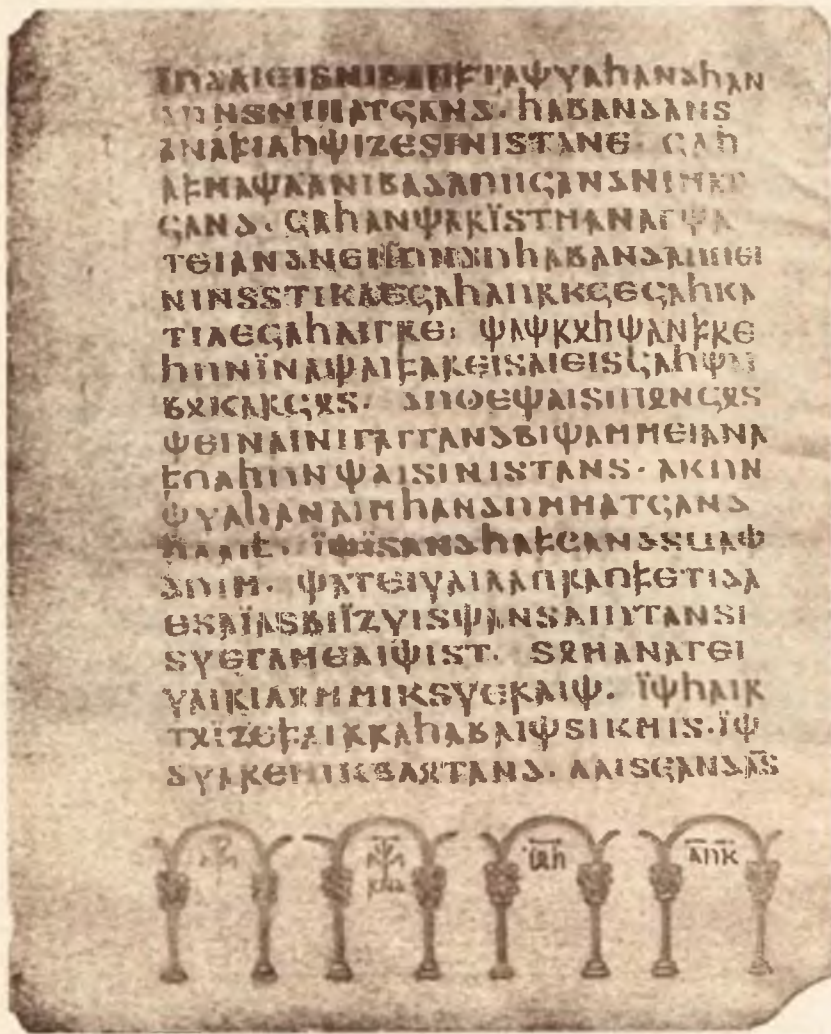 𐌹̈𐌿𐌳𐌰𐌹𐌴𐌹𐍃𐌽𐌹𐌱𐌰𐌿𐍆𐍄𐌰𐌸𐍅𐌰𐌷𐌰𐌽𐌳𐌷𐌰𐌽
𐌳𐌿𐌽𐍃𐌽𐌹𐌼𐌰𐍄𐌾𐌰𐌽𐌳· 𐌷𐌰𐌱𐌰𐌽𐌳𐌰𐌽𐍃
𐌰𐌽𐌰𐍆𐌹𐌻𐌷𐌸𐌹𐌶𐌴𐍃𐌹𐌽𐌹𐍃𐍄𐌰𐌽𐌴· 𐌾𐌰𐌷
𐌰𐍆𐌼𐌰𐌸𐌻𐌰𐌽𐌹𐌱𐌰𐌳𐌰𐌿𐍀𐌾𐌰𐌽𐌳𐌽𐌹𐌼𐌰𐍄
𐌾𐌰𐌽𐌳· 𐌾𐌰𐌷𐌰𐌽𐌸𐌰𐍂𐌹̈𐍃𐍄𐌼𐌰𐌽𐌰𐌲𐌸𐌰
𐍄𐌴𐌹𐌰𐌽𐌳𐌽𐌴𐌼𐌿𐌽𐌳𐌿𐌷𐌰𐌱𐌰𐌽𐌳𐌰𐌿𐍀𐌴𐌹
𐌽𐌹𐌽𐍃𐍃𐍄𐌹𐌺𐌻𐌴𐌾𐌰𐌷𐌰𐌿𐍂𐌺𐌾𐌴𐌾𐌰𐌷𐌺𐌰
𐍄𐌹𐌻𐌴𐌾𐌰𐌷𐌻𐌹𐌲𐍂𐌴: 𐌸𐌰𐌸𐍂𐍉𐌷𐌸𐌰𐌽𐍆𐍂𐌴
𐌷𐌿𐌽𐌹̈𐌽𐌰𐌸𐌰𐌹𐍆𐌰𐍂𐌴𐌹𐍃𐌰𐌹𐌴𐌹𐍃𐌾𐌰𐌷𐌸𐌰𐌹
𐌱𐍉𐌺𐌰𐍂𐌾𐍉𐍃· 𐌳𐌿𐍈𐌴𐌸𐌰𐌹𐍃𐌹𐍀𐍉𐌽𐌾𐍉𐍃
𐌸𐌴𐌹𐌽𐌰𐌹𐌽𐌹𐌲𐌰𐌲𐌲𐌰𐌽𐌳𐌱𐌹𐌸𐌰𐌼𐌼𐌴𐌹𐌰𐌽𐌰
𐍆𐌿𐌻𐌷𐌿𐌽𐌸𐌰𐌹𐍃𐌹𐌽𐌹𐍃𐍄𐌰𐌽𐍃· 𐌰𐌺𐌿𐌽
𐌸𐍅𐌰𐌷𐌰𐌽𐌰𐌹𐌼𐌷𐌰𐌽𐌳𐌿𐌼𐌼𐌰𐍄𐌾𐌰𐌽𐌳
𐌷𐌻𐌰𐌹𐍆· 𐌹̈𐌸𐌹̈𐍃𐌰𐌽𐌳𐌷𐌰𐍆𐌾𐌰𐌽𐌳𐍃𐌵𐌰𐌸
𐌳𐌿𐌹𐌼· 𐌸𐌰𐍄𐌴𐌹𐍅𐌰𐌹𐌻𐌰𐍀𐍂𐌰𐌿𐍆𐌴𐍄𐌹𐌳𐌰
𐌴𐍃𐌰𐌹̈𐌰𐍃𐌱𐌹𐌹̈𐌶𐍅𐌹𐍃𐌸𐌰𐌽𐍃𐌻𐌹𐌿𐍄𐌰𐌽𐍃
𐍃𐍅𐌴𐌲𐌰𐌼𐌴𐌻𐌹𐌸𐌹𐍃𐍄· 𐍃𐍉𐌼𐌰𐌽𐌰𐌲𐌴𐌹
𐍅𐌰𐌹𐍂𐌹𐌻𐍉𐌼𐌼𐌹𐌺𐍃𐍅𐌴𐍂𐌰𐌹𐌸· 𐌹̈𐌸𐌷𐌰𐌹𐍂
𐍄𐍉𐌹̈𐌶𐌴𐍆𐌰𐌹𐍂𐍂𐌰𐌷𐌰𐌱𐌰𐌹𐌸𐍃𐌹𐌺𐌼𐌹𐍃· 𐌹̈𐌸
𐍃𐍅𐌰𐍂𐌴𐌼𐌹𐌺𐌱𐌻𐍉𐍄𐌰𐌽𐌳· 𐌻𐌰𐌹𐍃𐌾𐌰𐌽𐌳𐌰𐌽𐍃
𐌹̈𐍉𐌷 𐌻𐌿𐌺